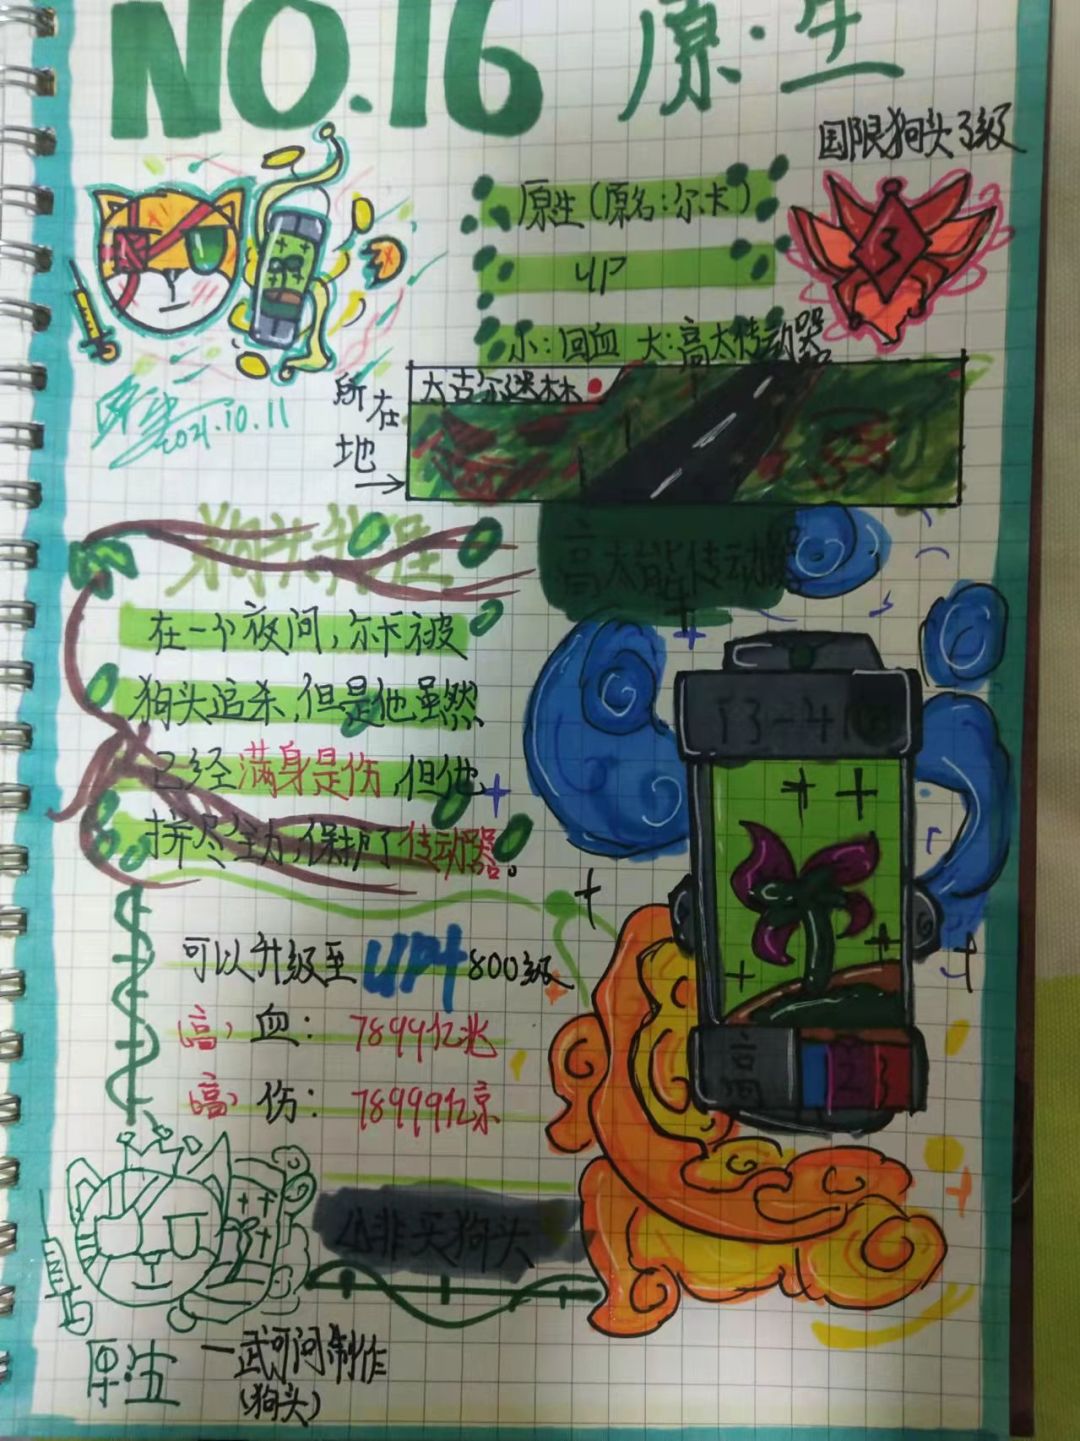 NO.16 原·生
国限狗头3级
3
原生(原名:尔卡)
4P
小:回血 大:高太传动器
所在地
太古尔迷林
2021.10.11
狗头生涯
高太能传动器
在一个夜间,尔卡被
狗头追杀,但是他虽然
已经满身是伤,但他
拼尽全力,保护了传动器。
T3-4
可以升级至UP4 800级
(高)血: 7899亿兆
(高)伤: 78999亿京
高 2 3
非买狗头
原·生
一武可问制作
(狗头)